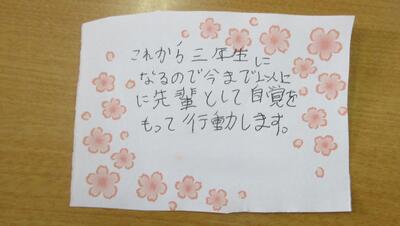 これから三年生に
なるので今まで以上に
に先輩として自覚を
もって行動します。